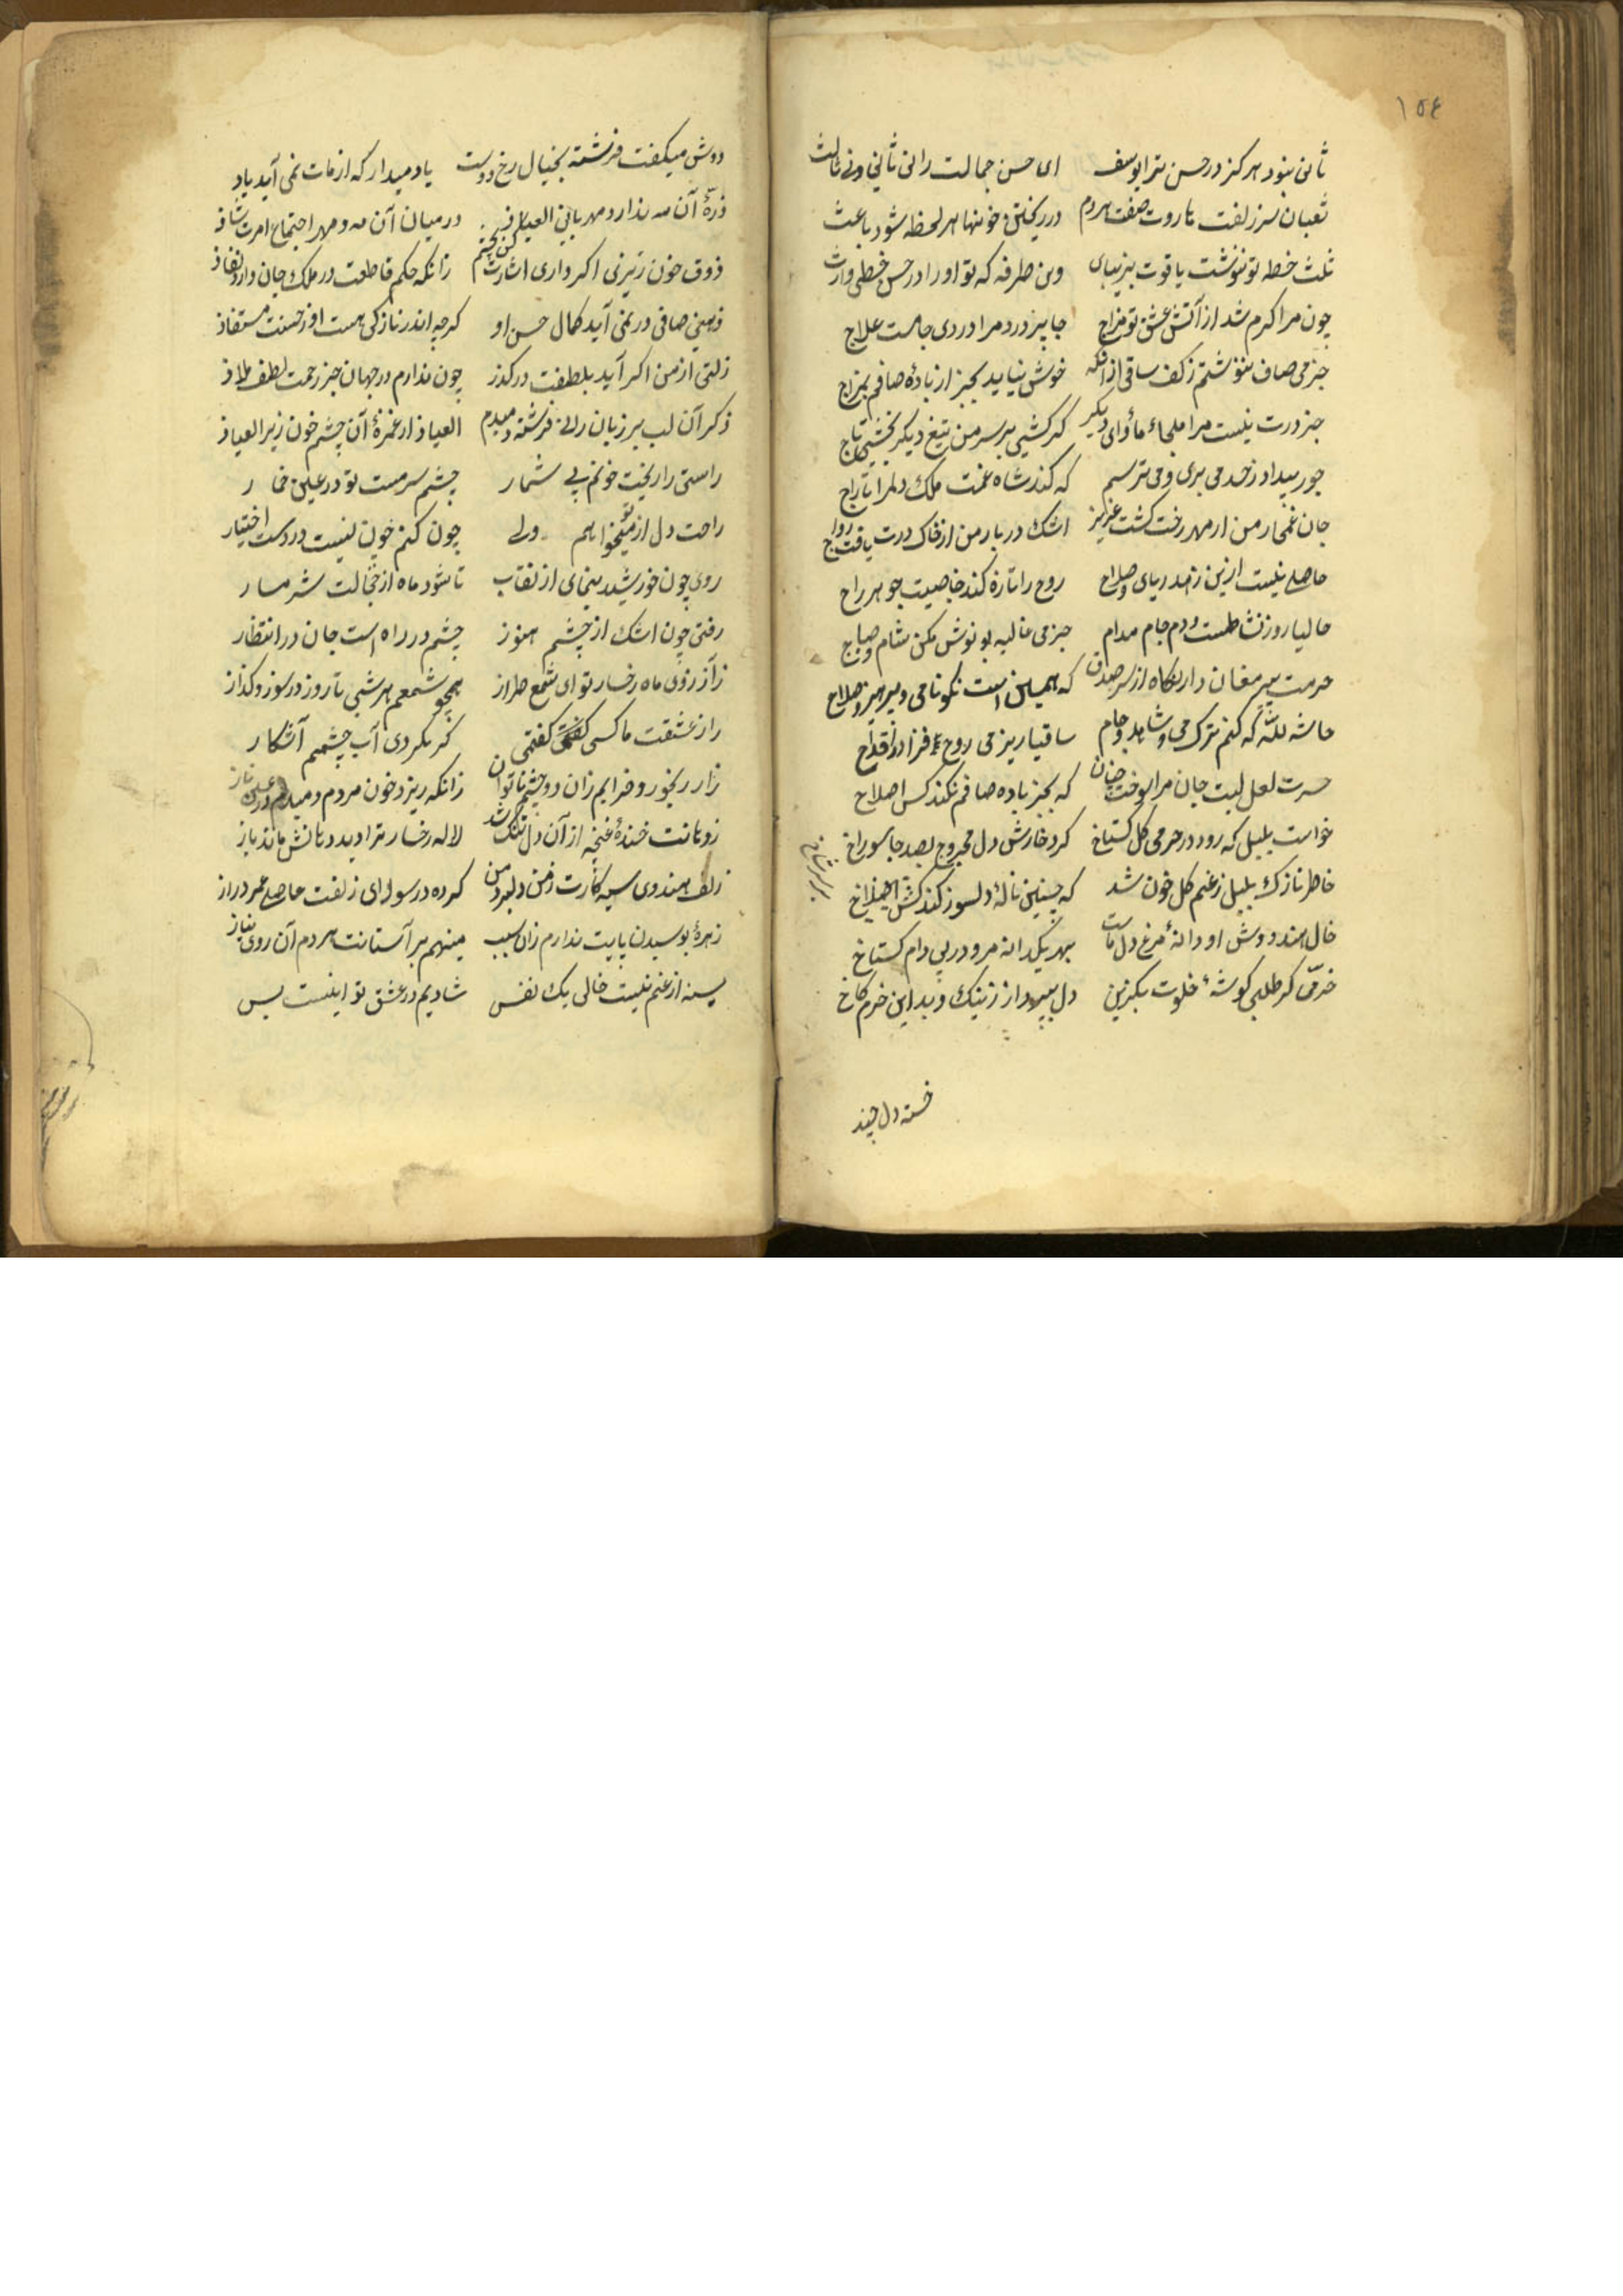 ١٥٤
ثانی نبود هرگز در حسن ترا یوسف ای حسن جمالت را نی ثانی و نی ثالث
ثعبان سر زلفت هاروت صفت هر دم در ریختن خونها هر لحظه شود باعث
ثلث خط تو ننوشت یاقوت بزیبای وین طرفه که تو او را در حسن خطی وارث
چون مرا کرم شد از آتش عشق تو مزاج درد مرا دردی جامست علاج
جز می صاف ننوشتم ز کف ساقی از آنکه خوش نیاید بجز از بادهٔ صافم بمزاج
جز درت نیست مرا ملجاء و ماوای دیکر کر کشی بر سر من تیغ دیکر بخشی تاج
جور بیداد ز حد می بری و می ترسم که کند شاه غمت ملک دلم را تاراج
جان غمخار من از مهر رخت کشت عزیز اشک دربار من از خاک درت یافت رواج
حاصلی نیست ازین زهد ریای و صلاح روح را تازه کند خاصیت جوهر راح
حالیا روز نشاطست و دم جام مدام جز می غالیه بو نوش مکن شام و صباح
حرمت پیر مغان دار نکاه از سر صدق که همین است نکونامی و پرهیز و صلاح
حاشه للله که کنم ترک می و شاهد و جام ساقیا ریز می روح فزا در اقداح
حسرت لعل لبت جان مرا سوخت چنان که بجز باده صافم نکند کس اصلاح
خواست بلبل که رود در حرمی کل کستاخ کرد خارش دل مجروح بصد جا سوراخ
خاطر نازک بلبل ز غم کل خون شد که چنین نالهٔ دلسوز کند
خال هندووش او دانهٔ مرغ دل ماست بهر یکدانه مرو در پی دام کستاخ
خرمی کر طلبی کوشهٔ خلوت بکزین دل بپرداز ز نیک و بد این خرم کاخ
خسته دل چند
دوش میکفت فرشته بخیال رخ دوست یاد میدار که از مات نمی آید یاد
ذرهٔ آن مه ندارد مهربانی العیاذ در میان آن مه و مهر اجتماع امرت شاذ
ذوق خون ریزی اکر داری اشارت کن بچشم زانکه حکم قاطعت در ملک جان دارد نفاذ
ذهنی صافی در نمی آید کمال حسن او کرچه اندر نازکی هست او ز حسنت مستفاذ
زلتی از من اکر آید بلطفت درکذر چون ندارم در جهان جز رحمت لطف ملاذ
ذکر آن لب بر زبان فرشته دمبدم العیاذ از غمزهٔ آن چشم خون ریز العیاذ
راستی را ریخت خونم بی شمار چشم سرمست تو در عین خمار
راحت دل از تو میخواهم ولی چون کنم چون نیست در دست اختیار
روی چون خورشید بنمای از نقاب تا شود ماه از خجالت شرمسار
رفتی چون اشک از چشم هنوز چشم در راه است جان در انتظار
ز آرزوی ماه رخسار تو ای شمع طراز همچو شمعم هر شبی تا روز در سوز و کداز
راز عشقت با کسی کفتمی کر نکردی آب چشمم آشکار
زار و رنجور و خرابم زان دو چشم ناتوان زانکه ریزد خون مردم دمبدم در عین ناز
زدهانت خندهٔ غنچه از آن دل تنک شد لاله رخسار ترا دید دهانش ماند باز
زلف هندوی سیه کارت ز من دل برد من کرده در سودای زلفت حاصل عمر دراز
زهرهٔ بوسیدن پایت ندارم زان سبب مینهم بر آستانت هر دم آن روی نیاز
سینه از غم نیست خالی یک نفس شادیم در عشق تو اینست بس